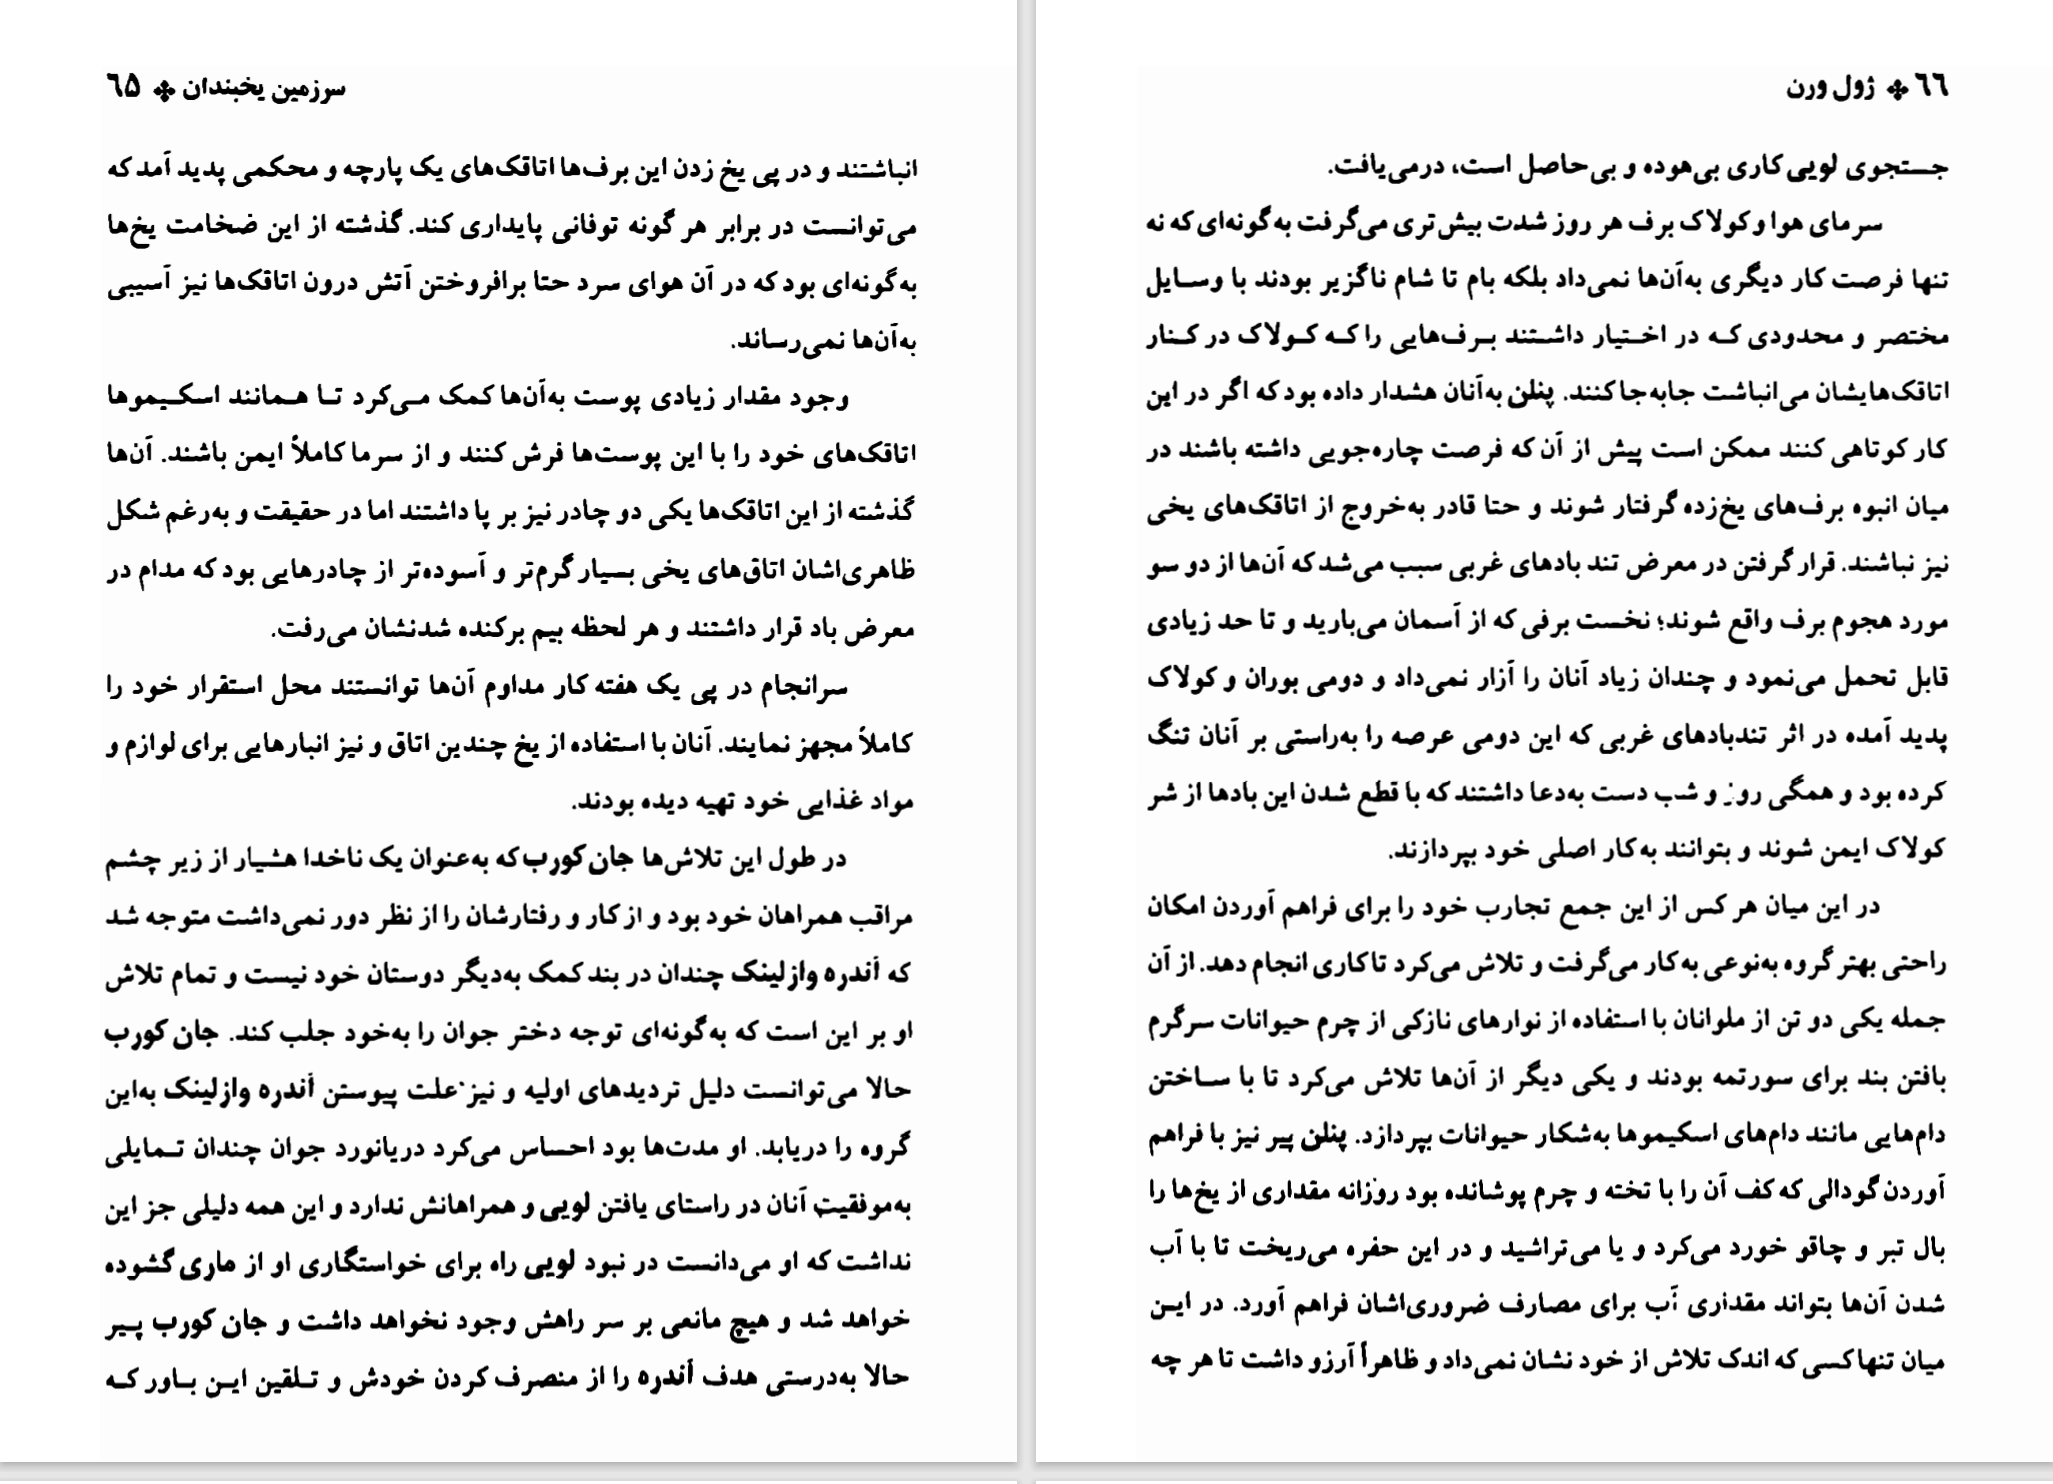 سرزمین یخبندان ✤ ٦۵
انباشتند و در پی یخ زدن این برف‌ها اتاقک‌های یک پارچه و محکمی پدید آمد که
می‌توانست در برابر هر گونه توفانی پایداری کند. گذشته از این ضخامت یخ‌ها
به‌گونه‌ای بود که در آن هوای سرد حتا برافروختن آتش درون اتاقک‌ها نیز آسیبی
به‌آن‌ها نمی‌رساند.
وجود مقدار زیادی پوست به‌آن‌ها کمک می‌کرد تا همانند اسکیموها
اتاقک‌های خود را با این پوست‌ها فرش کنند و از سرما کاملاً ایمن باشند. آن‌ها
گذشته از این اتاقک‌ها یکی دو چادر نیز بر پا داشتند اما در حقیقت و به‌رغم شکل
ظاهری‌اشان اتاق‌های یخی بسیار گرم‌تر و آسوده‌تر از چادرهایی بود که مدام در
معرض باد قرار داشتند و هر لحظه بیم برکنده شدنشان می‌رفت.
سرانجام در پی یک هفته کار مداوم آن‌ها توانستند محل استقرار خود را
کاملاً مجهز نمایند. آنان با استفاده از یخ چندین اتاق و نیز انبارهایی برای لوازم و
مواد غذایی خود تهیه دیده بودند.
در طول این تلاش‌ها جان کورب که به‌عنوان یک ناخدا هشیار از زیر چشم
مراقب همراهان خود بود و از کار و رفتارشان را از نظر دور نمی‌داشت متوجه شد
که آندره وازلینک چندان در بند کمک به‌دیگر دوستان خود نیست و تمام تلاش
او بر این است که به‌گونه‌ای توجه دختر جوان را به‌خود جلب کند. جان کورب
حالا می‌توانست دلیل تردیدهای اولیه و نیز علت پیوستن آندره وازلینک به‌این
گروه را دریابد. او مدت‌ها بود احساس می‌کرد دریانورد جوان چندان تمایلی
به‌موفقیت آنان در راستای یافتن لویی و همراهانش ندارد و این همه دلیلی جز این
نداشت که او می‌دانست در نبود لویی راه برای خواستگاری او از ماری گشوده
خواهد شد و هیچ مانعی بر سر راهش وجود نخواهد داشت و جان کورب پیر
حالا به‌درستی هدف آندره را از منصرف کردن خودش و تلقین این باور که
٦٦ ✤ ژول ورن
جستجوی لویی کاری بی‌هوده و بی‌حاصل است، درمی‌یافت.
سرمای هوا و کولاک برف هر روز شدت بیش‌تری می‌گرفت به‌گونه‌ای که نه
تنها فرصت کار دیگری به‌آن‌ها نمی‌داد بلکه بام تا شام ناگزیر بودند با وسایل
مختصر و محدودی که در اختیار داشتند برف‌هایی را که کولاک در کنار
اتاقک‌هایشان می‌انباشت جابه‌جا کنند. پنلن به‌آنان هشدار داده بود که اگر در این
کار کوتاهی کنند ممکن است پیش از آن که فرصت چاره‌جویی داشته باشند در
میان انبوه برف‌های یخ‌زده گرفتار شوند و حتا قادر به‌خروج از اتاقک‌های یخی
نیز نباشند. قرار گرفتن در معرض تند بادهای غربی سبب می‌شد که آن‌ها از دو سو
مورد هجوم برف واقع شوند؛ نخست برفی که از آسمان می‌بارید و تا حد زیادی
قابل تحمل می‌نمود و چندان زیاد آنان را آزار نمی‌داد و دومی بوران و کولاک
پدید آمده در اثر تندبادهای غربی که این دومی عرصه را به‌راستی بر آنان تنگ
کرده بود و همگی روز و شب دست به‌دعا داشتند که با قطع شدن این بادها از شر
کولاک ایمن شوند و بتوانند به‌کار اصلی خود بپردازند.
در این میان هر کس از این جمع تجارب خود را برای فراهم آوردن امکان
راحتی بهتر گروه به‌نوعی به‌کار می‌گرفت و تلاش می‌کرد تا کاری انجام دهد. از آن
جمله یکی دو تن از ملوانان با استفاده از نوارهای نازکی از چرم حیوانات سرگرم
بافتن بند برای سورتمه بودند و یکی دیگر از آن‌ها تلاش می‌کرد تا با ساختن
دام‌هایی مانند دام‌های اسکیموها به‌شکار حیوانات بپردازد. پنلن پیر نیز با فراهم
آوردن گودالی که کف آن را با تخته و چرم پوشانده بود روزانه مقداری از یخ‌ها را
بال تبر و چاقو خورد می‌کرد و یا می‌تراشید و در این حفره می‌ریخت تا با آب
شدن آن‌ها بتواند مقداری آب برای مصارف ضروری‌اشان فراهم آورد. در این
میان تنها کسی که اندک تلاش از خود نشان نمی‌داد و ظاهراً آرزو داشت تا هر چه